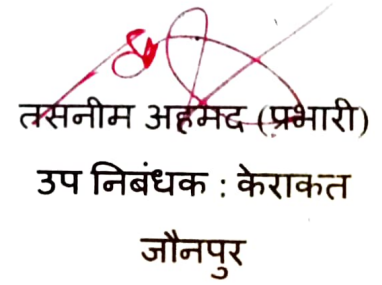 तसनीम अहमद (प्रभारी)
उप निबंधक : केराकत
जौनपुर